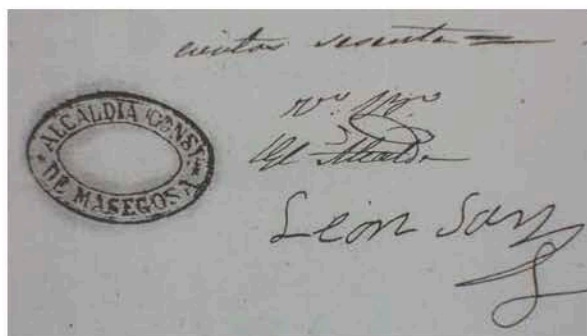 cientos sesenta =
ALCALDIA CONSL.
DE MASEGOSA
Vº Bº
El Alcalde
Leon Sanz